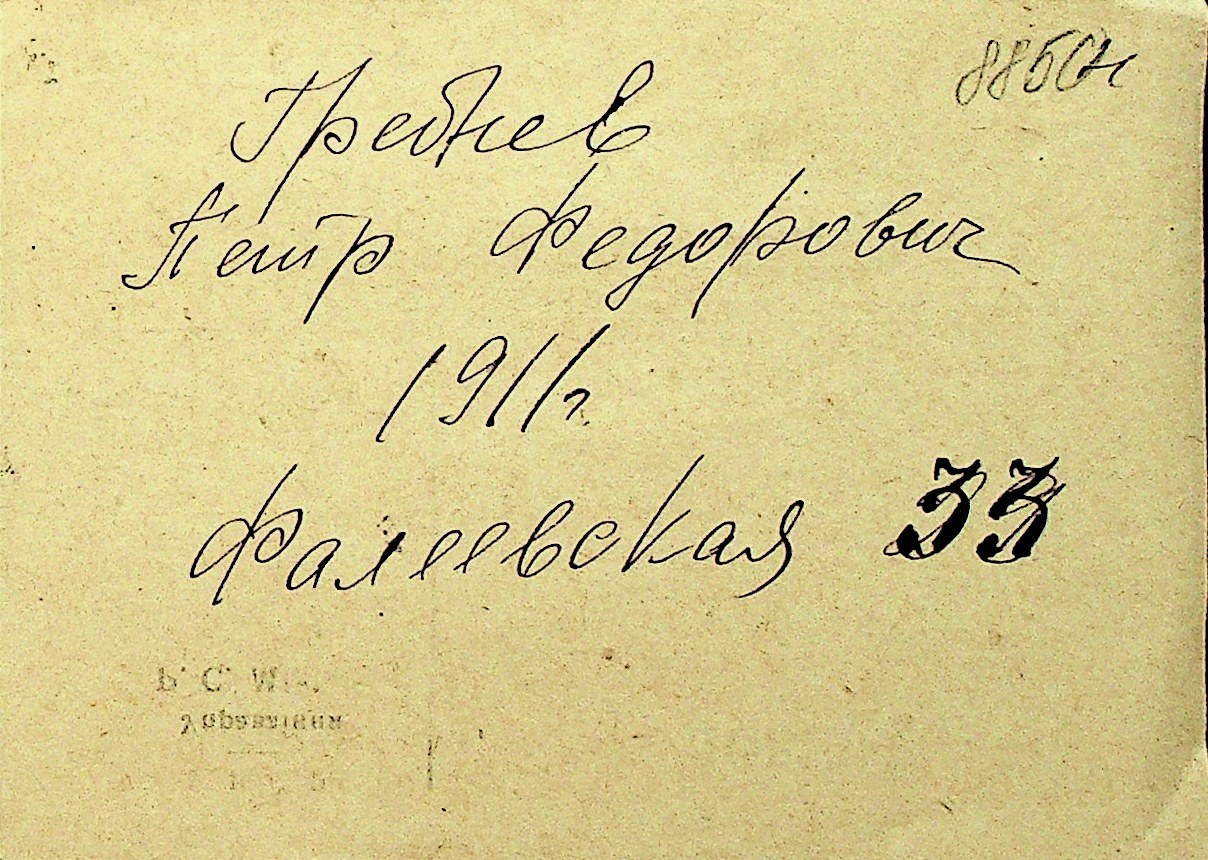 8850н
Гребнев
Петр Федорович
1911г.
Фалеевская 33